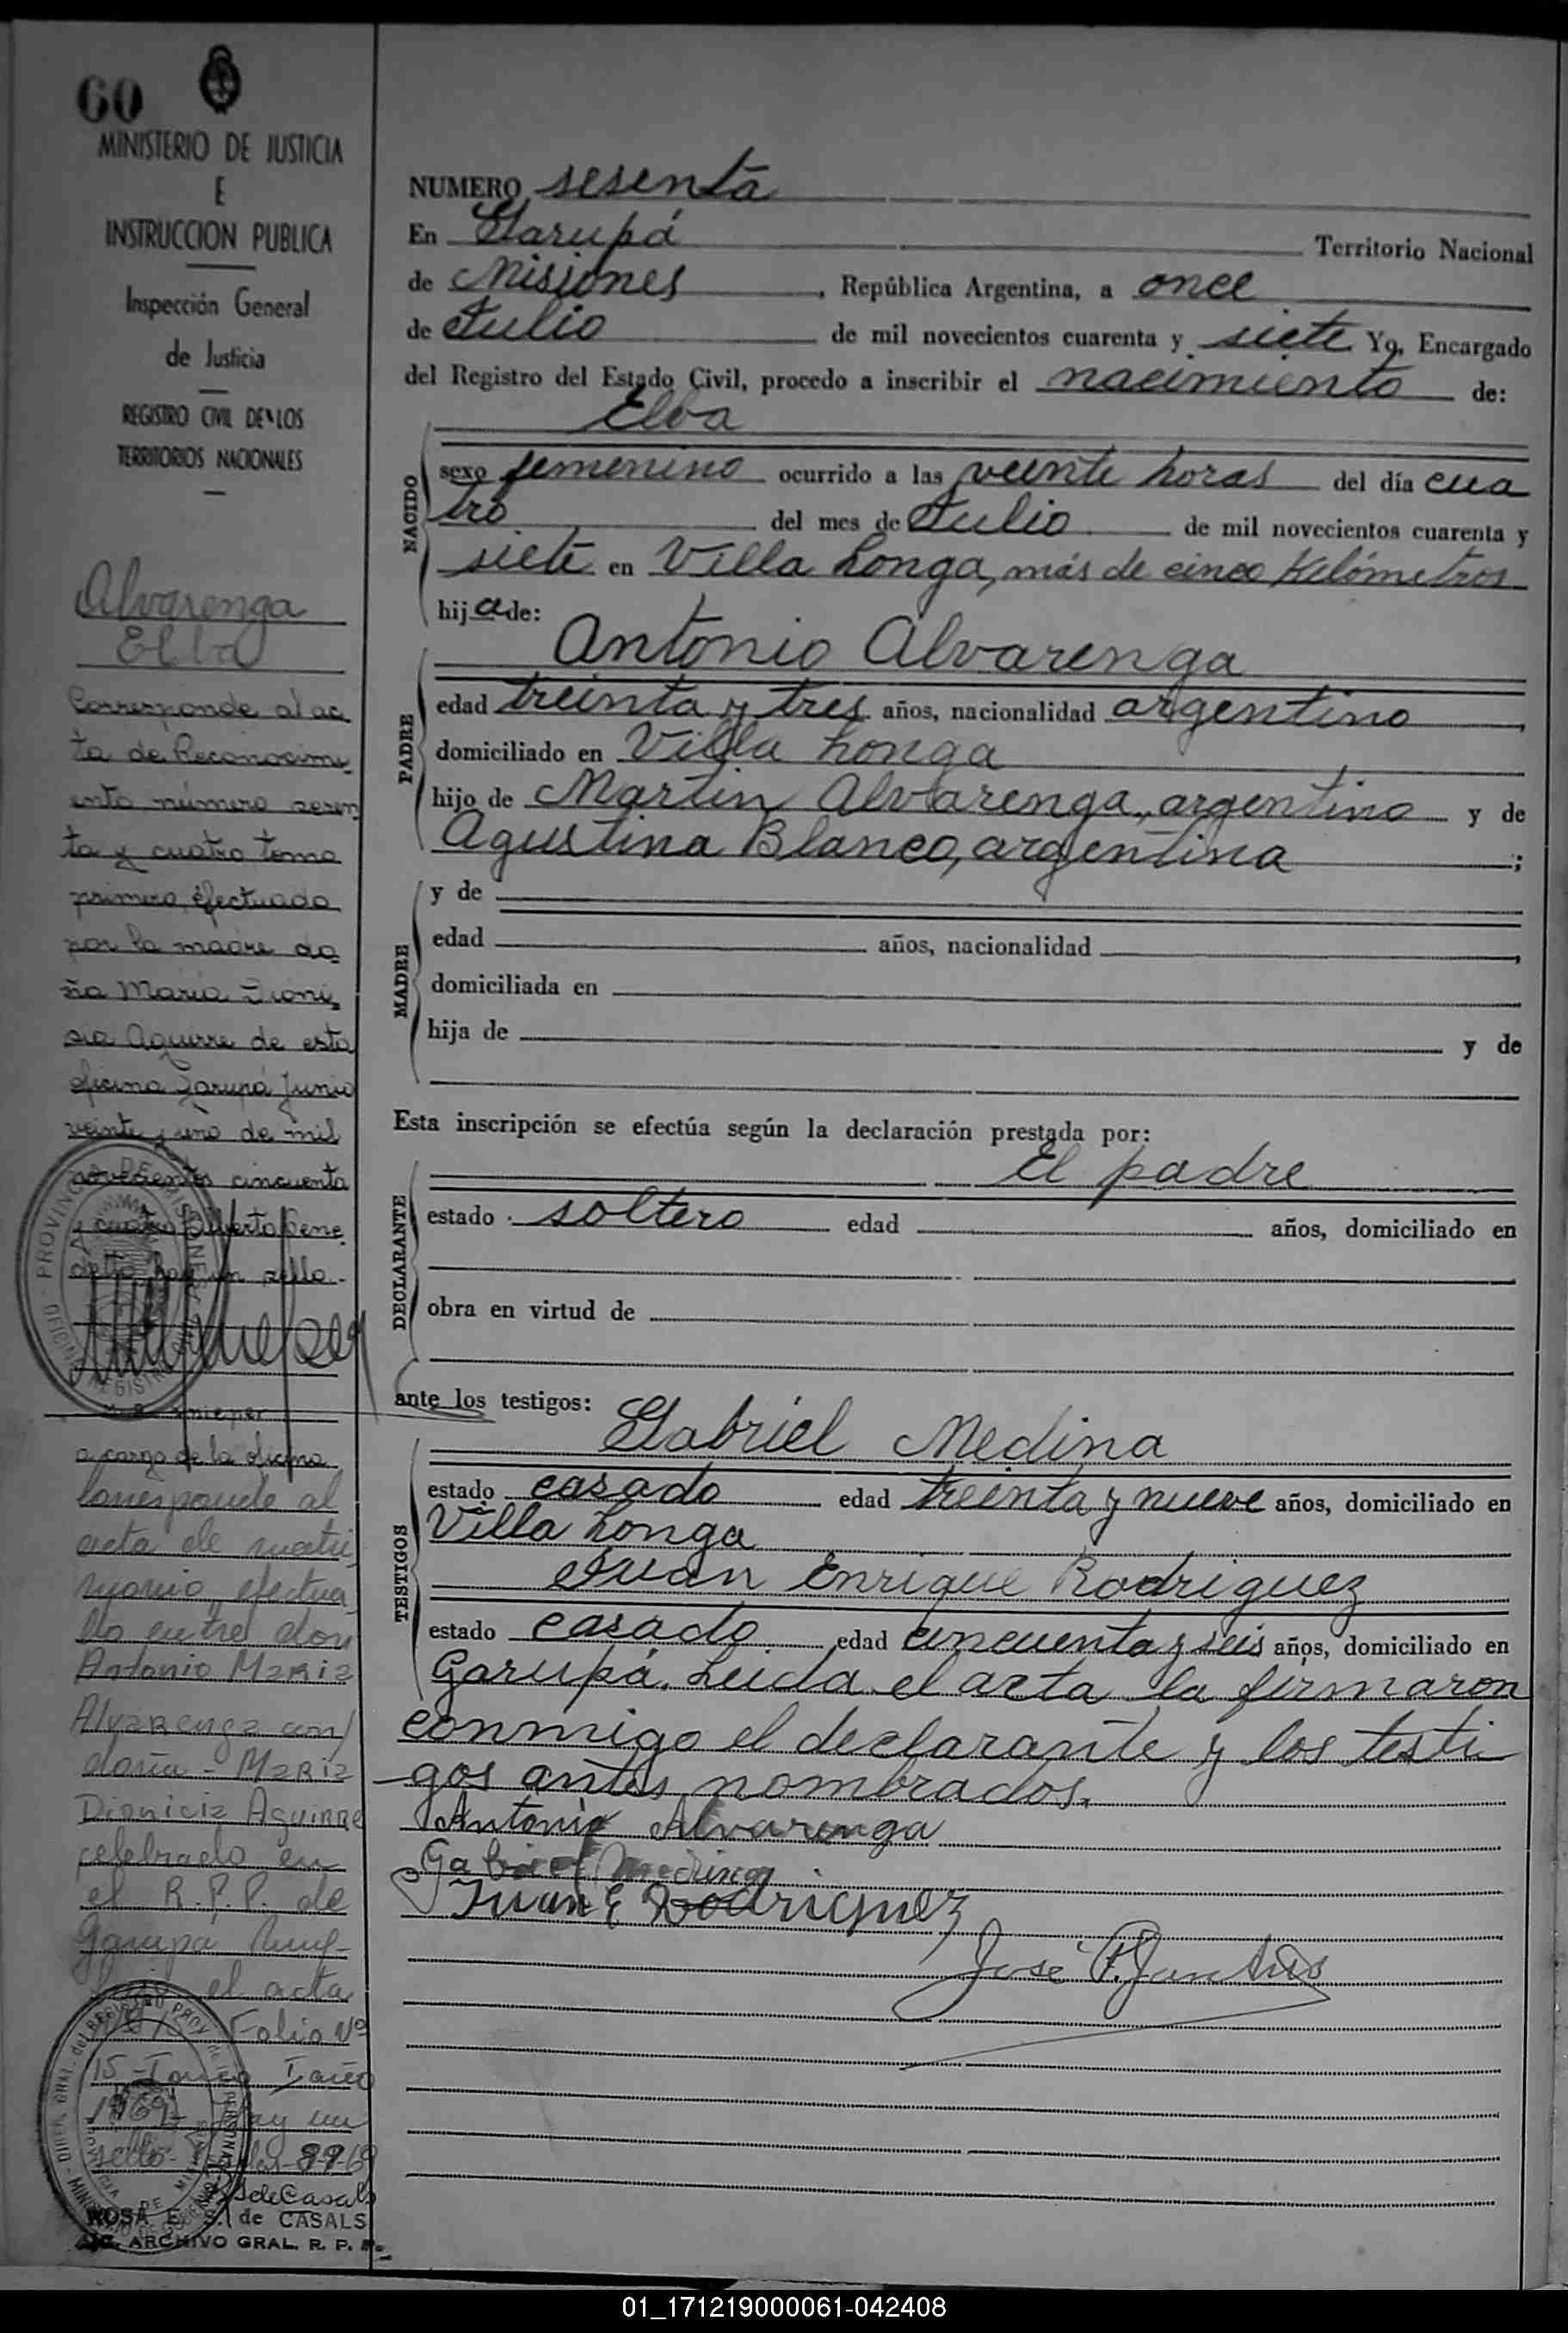 60
MINISTERIO DE JUSTICIA
E
INSTRUCCION PUBLICA
Inspección General
de Justicia
REGISTRO CIVIL DE LOS
TERRITORIOS NACIONALES
Alvarenga
Elba
Corresponde al ac
ta de Reconocimi
ento número sesen
ta y cuatro tomo
primero efectuado
por la madre do
ña María Dioni
sia Aguirre de esta
oficina Garupá Junio
veinte y uno de mil
novecientos cincuenta
y cuatro
Hay un sello.-
a cargo de la oficina
Corresponde al
acta de matri
monio, efectua
do entre don
Antonio Maria
Alvarenga con
doña - Maria
Dionicia Aguirre
celebrado en
el R.P.P. de
Garupá
el acta
Folio Nº
15-Tomo I año
1969- Hay un
sello-
ROSA E. S. de CASALS
ARCHIVO GRAL. R. P. P.
NUMERO sesenta
En Garupá Territorio Nacional
de Misiones, República Argentina, a once
de Julio de mil novecientos cuarenta y siete Yo, Encargado
del Registro del Estado Civil, procedo a inscribir el nacimiento de:
Elba
NACIDO
sexo femenino ocurrido a las veinte horas del día cua
tro del mes de Julio de mil novecientos cuarenta y
siete en Villa Longa, más de cinco Kilómetros
hija de:
Antonio Alvarenga
PADRE
edad treinta y tres años, nacionalidad argentino,
domiciliado en Villa Longa
hijo de Martin Alvarenga, argentino y de
Agustina Blanco, argentina;
MADRE
y de
edad años, nacionalidad,
domiciliada en
hija de y de
Esta inscripción se efectúa según la declaración prestada por:
El padre
DECLARANTE
estado soltero edad años, domiciliado en
obra en virtud de
ante los testigos:
Gabriel Medina
TESTIGOS
estado casado edad treinta y nueve años, domiciliado en
Villa Longa
Juan Enrique Rodriguez
estado casado edad cincuenta y seis años, domiciliado en
Garupá. Leida el acta la firmaron
conmigo el declarante y los testi
gos antes nombrados.
Antonio Alvarenga
Gabriel Medina
Juan E Rodriguez
01_171219000061-042408